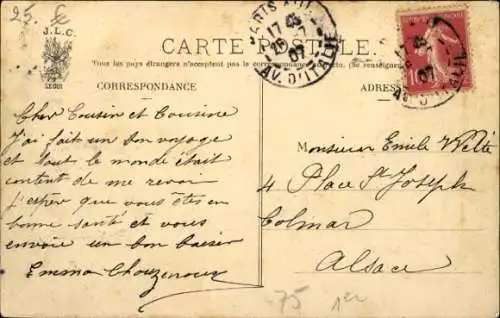 25. fe
J.L.C.
CARTE POSTALE
Tous les pays étrangers n'acceptent pas la correspondance (Se renseigner
CORRESPONDANCE
ADRESSE
PARIS
17 45
07
AV. D'ITALIE
17 45
07
AV. D'ITALIE
10
Cher Cousin et Cousine
J'ai fait un bon voyage
et tout le monde était
content de me revoir
J'espère que vous êtes en
bonne santé et vous
envoie un bon baiser
Emma
Monsieur Emile Welte
4 Place St Joseph
Colmar
Alsace
75 1er